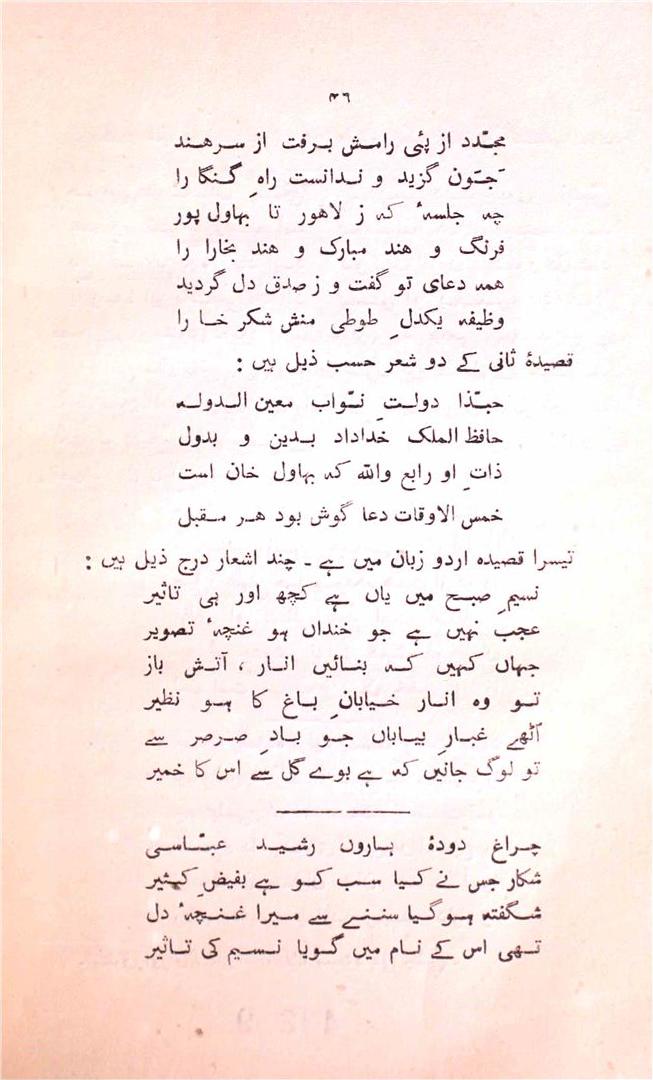 ۴۶
مجدّد از پئی رامش برفت از سرھند
جَتون گزید و ندانست راہِ گنگا را
چہ جلسۂ کہ ز لاھور تا بہاول پور
فرنگ و ھند مبارک و ھند بخارا را
ھمہ دعای تو گفت و ز صدق دل گردید
وظیفہ یکدلِ طوطی منش شکر خا را
قصیدۂ ثانی کے دو شعر حسب ذیل ہیں :
حبّذا دولتِ نوّاب معین الدولہ
حافظ الملک خداداد بدین و بدول
ذاتِ او رابع واللہ کہ بہاول خان است
خمس الاوقات دعا گوش بود ھر مقبل
تیسرا قصیدہ اردو زبان میں ہے ۔ چند اشعار درج ذیل ہیں :
نسیمِ صبح میں یاں ہے کچھ اور ہی تاثیر
عجب نہیں ہے جو خنداں ہو غنچۂ تصویر
جہاں کہیں کہ بنائیں انار ، آتش باز
تو وہ انار خیابانِ باغ کا ہو نظیر
اٹھے غبارِ بیاباں جو بادِ صرصر سے
تو لوگ جانیں کہ ہے بوے گل سے اس کا خمیر
چراغ دودۂ ہارون رشید عبّاسی
شکار جس نے کیا سب کو ہے بفیضِ کثیر
شگفتہ ہوگیا سننے سے میرا غنچۂ دل
تھی اس کے نام میں گویا نسیم کی تاثیر